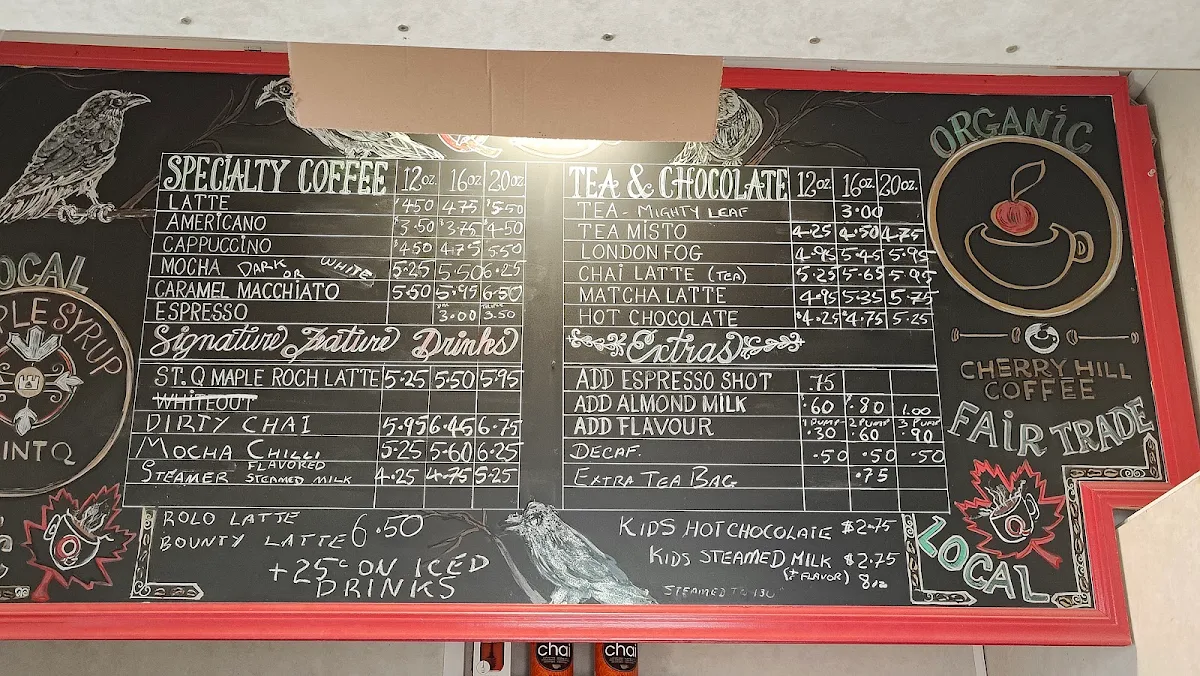 SPECIALTY COFFEE 12oz 16oz 20oz
LATTE $4.50 4.75 $5.50
AMERICANO $3.50 $3.75 $4.50
CAPPUCCINO $4.50 4.75 5.50
MOCHA DARK OR WHITE 5.25 5.50 6.25
CARAMEL MACCHIATO 5.50 5.95 6.50
ESPRESSO 3.00 3.50
Signature Feature Drinks
ST. Q MAPLE ROCH LATTE 5.25 5.50 5.95
WHITEOUT
DIRTY CHAI 5.95 6.45 6.75
MOCHA CHILLI 5.25 5.60 6.25
STEAMER FLAVORED STEAMED MILK 4.25 4.75 5.25
ROLO LATTE
BOUNTY LATTE 6.50
+25¢ ON ICED
DRINKS
TEA & CHOCOLATE 12oz 16oz 20oz
TEA - MIGHTY LEAF 3.00
TEA MISTO 4.25 4.50 4.75
LONDON FOG 4.95 5.45 5.95
CHAI LATTE (TEA) 5.25 5.65 5.95
MATCHA LATTE 4.95 5.35 5.75
HOT CHOCOLATE $4.25 $4.75 5.25
Extras
ADD ESPRESSO SHOT .75
ADD ALMOND MILK .60 .80 1.00
ADD FLAVOUR 1 PUMP .30 2 PUMP .60 3 PUMP .90
DECAF. .50 .50 .50
EXTRA TEA BAG .75
KIDS HOT CHOCOLATE $2.75
KIDS STEAMED MILK $2.75
(+ FLAVOR) 8oz
STEAMED TO 130°
OCAL
PLE SYRUP
INT Q
ORGANIC
CHERRY HILL
COFFEE
FAIR TRADE
Q
LOCAL
chai
chai